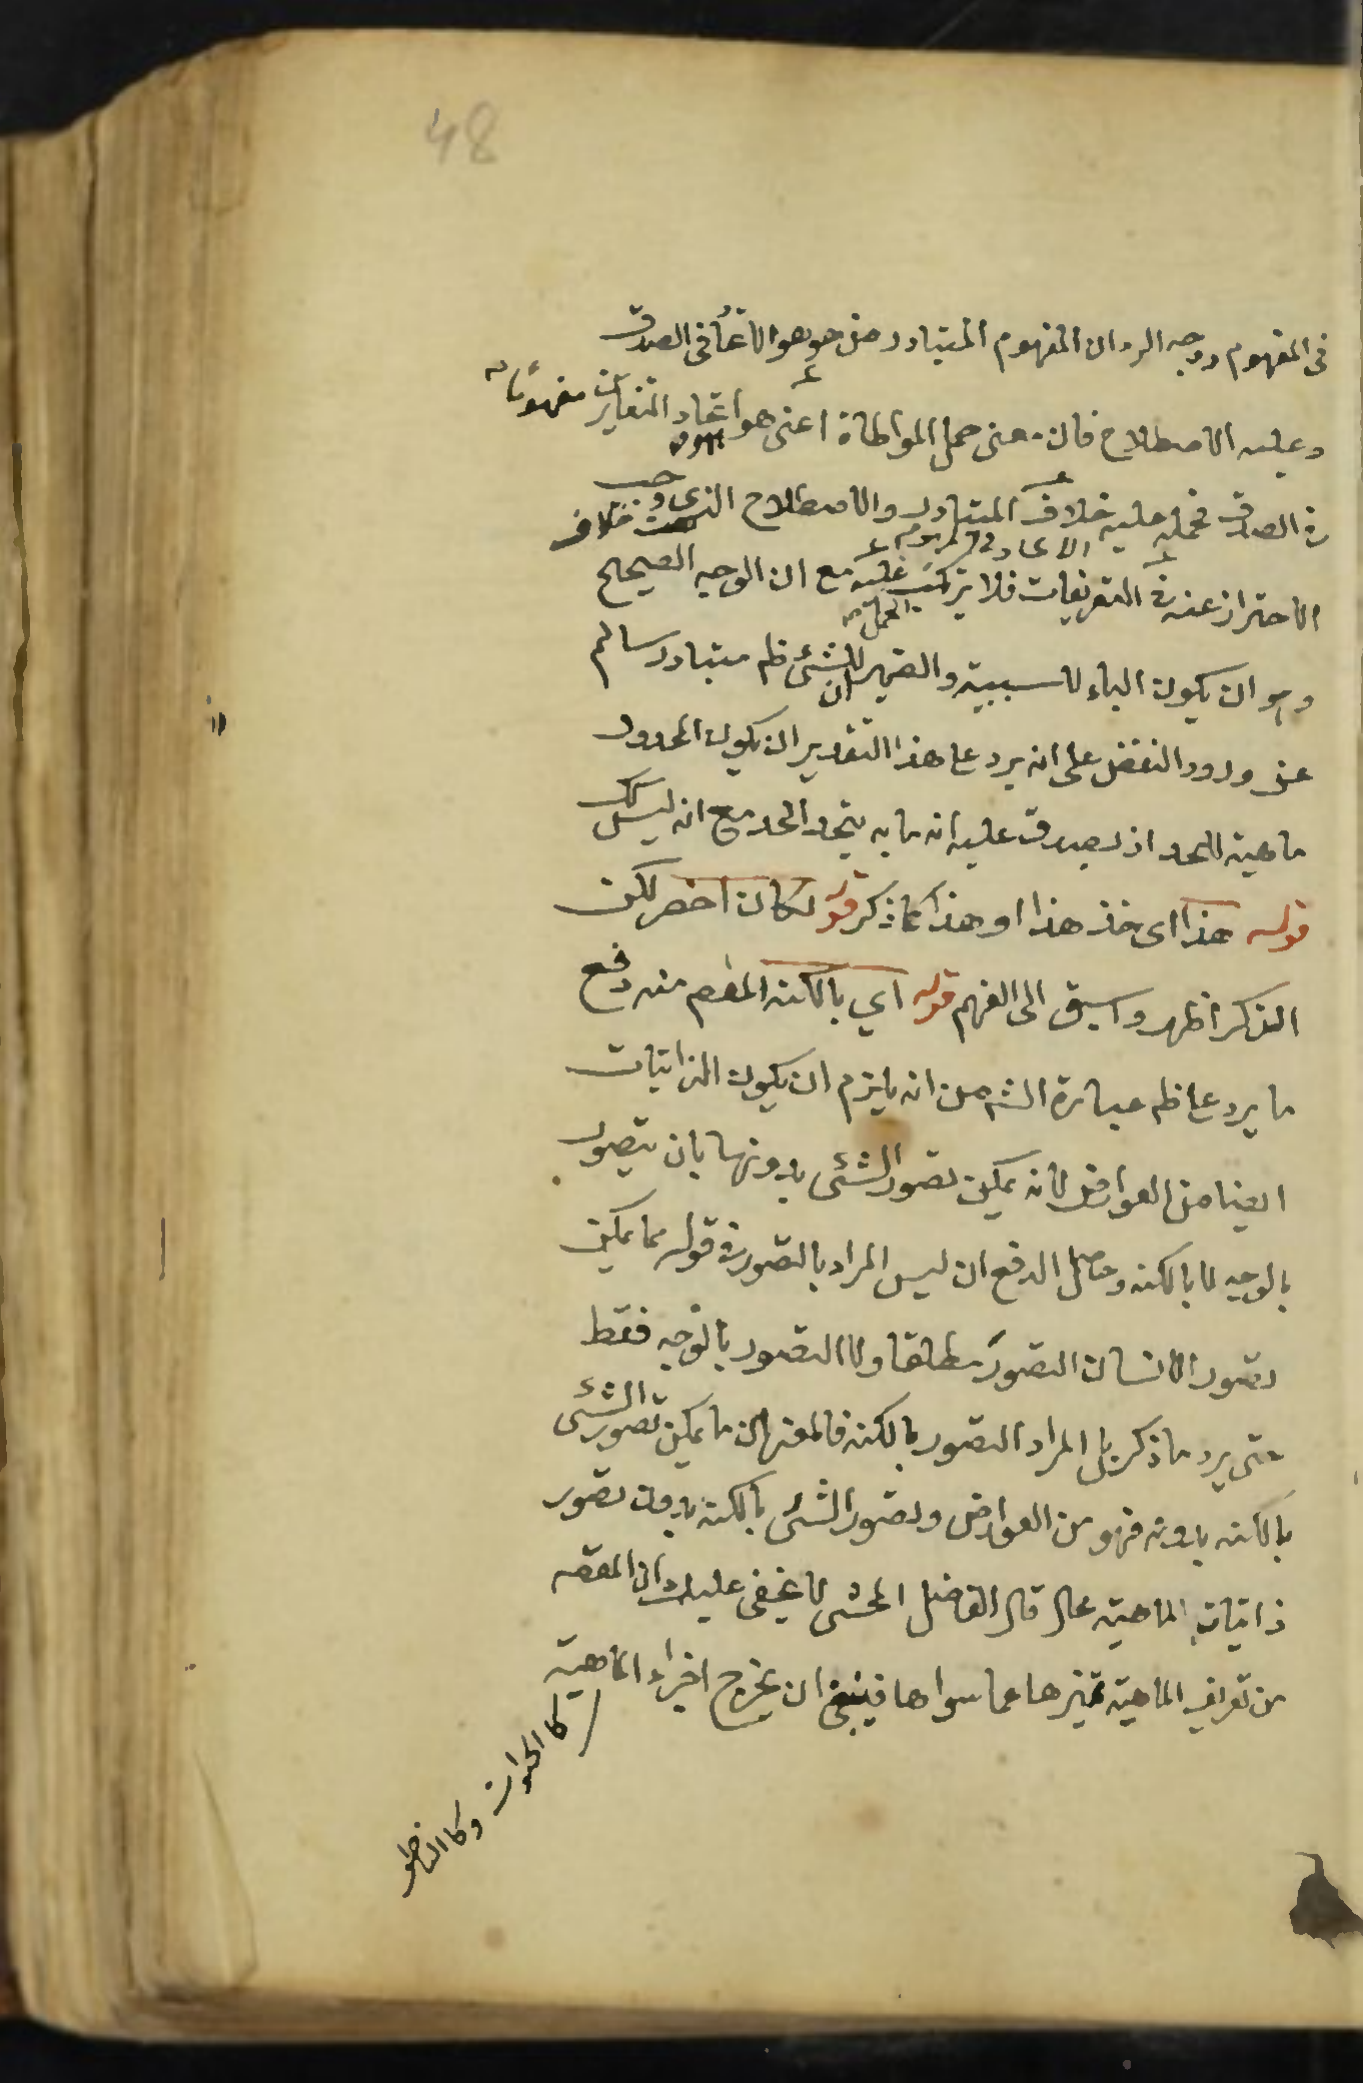 48
في المفهوم ووجه الرد ان المفهوم المتبادر من هو هو الاتحاد في الصدق
وعليه الاصطلاح فان معنى حمل المواطاة اعنى هو اتحاد المتغايرين مفهوما
في الصدق فحمله عليه خلاف المتبادر والاصطلاح الذى وجب
الاتحاد في المفهوم
الاحتراز عنه في التعريفات فلا يرتكب عليه مع ان الوجه الصحيح
الحمل
وهو ان يكون الباء للسببية والضمير للشئ ظم متبادر سالم
عن ورود النقض على انه يرد ع هذا التقدير ان يكون المحدود
ماهية للحد اذ يصدق عليه انه ما به يتحد الحد مع انه ليس كك
قوله هذا اى خذ هذا او هذا كما ذكر قوله لكان اخصر لكن
الذكر اظهر واسبق الى الفهم قوله اي بالكنه المقصم منه دفع
ما يرد ع ظم عبارة الشم من انه يلزم ان يكون الذاتيات
ايضا من العوارض لانه يمكن تصور الشئ بدونها بان يتصور
بالوجه لا بالكنه وحاصل الدفع ان ليس المراد بالتصور في قوله مما يمكن
تصور الانسان التصور مطلقا ولا التصور بالوجه فقط
حتى يرد ما ذكر بل المراد التصور بالكنه فالمعنى ان ما يمكن تصور الشئ
بالكنه بدونه فهو من العوارض وتصور الشئ بالكنه بدون تصور
ذاتيات الماهية محال قال الفاضل المحشى لا يخفى عليك ان المقصم
من تعريف الماهية تميزها عما سواها فينبغى ان يخرج اجزاء الماهية
كالحيوان وكالناطق